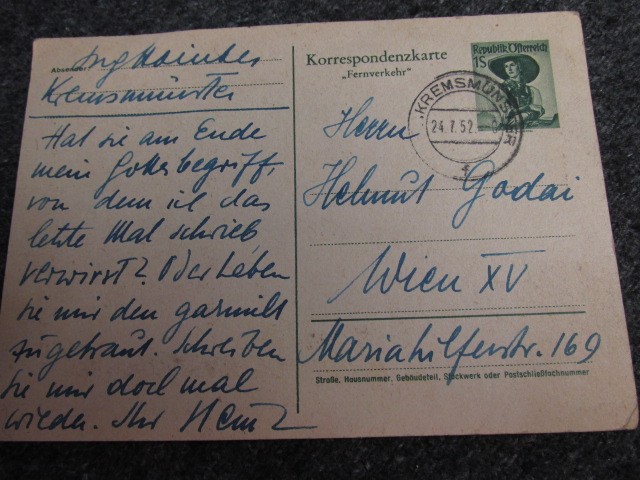 Absender:
Kremsmünster
Hat sie am Ende
mein Gottesbegriff,
von dem ich das
letzte Mal schrieb
verwirrt? Oder haben
sie mir den garnicht
zugetraut. Schreiben
sie mir doch mal
wieder. Ihr Heinz
Korrespondenzkarte
„Fernverkehr"
Republik Österreich
1S
KREMSMÜNSTER
24.7.52.
Herrn
Helmut Godai
Wien XV
Mariahilferstr. 169
Straße, Hausnummer, Gebäudeteil, Stockwerk oder Postschließfachnummer